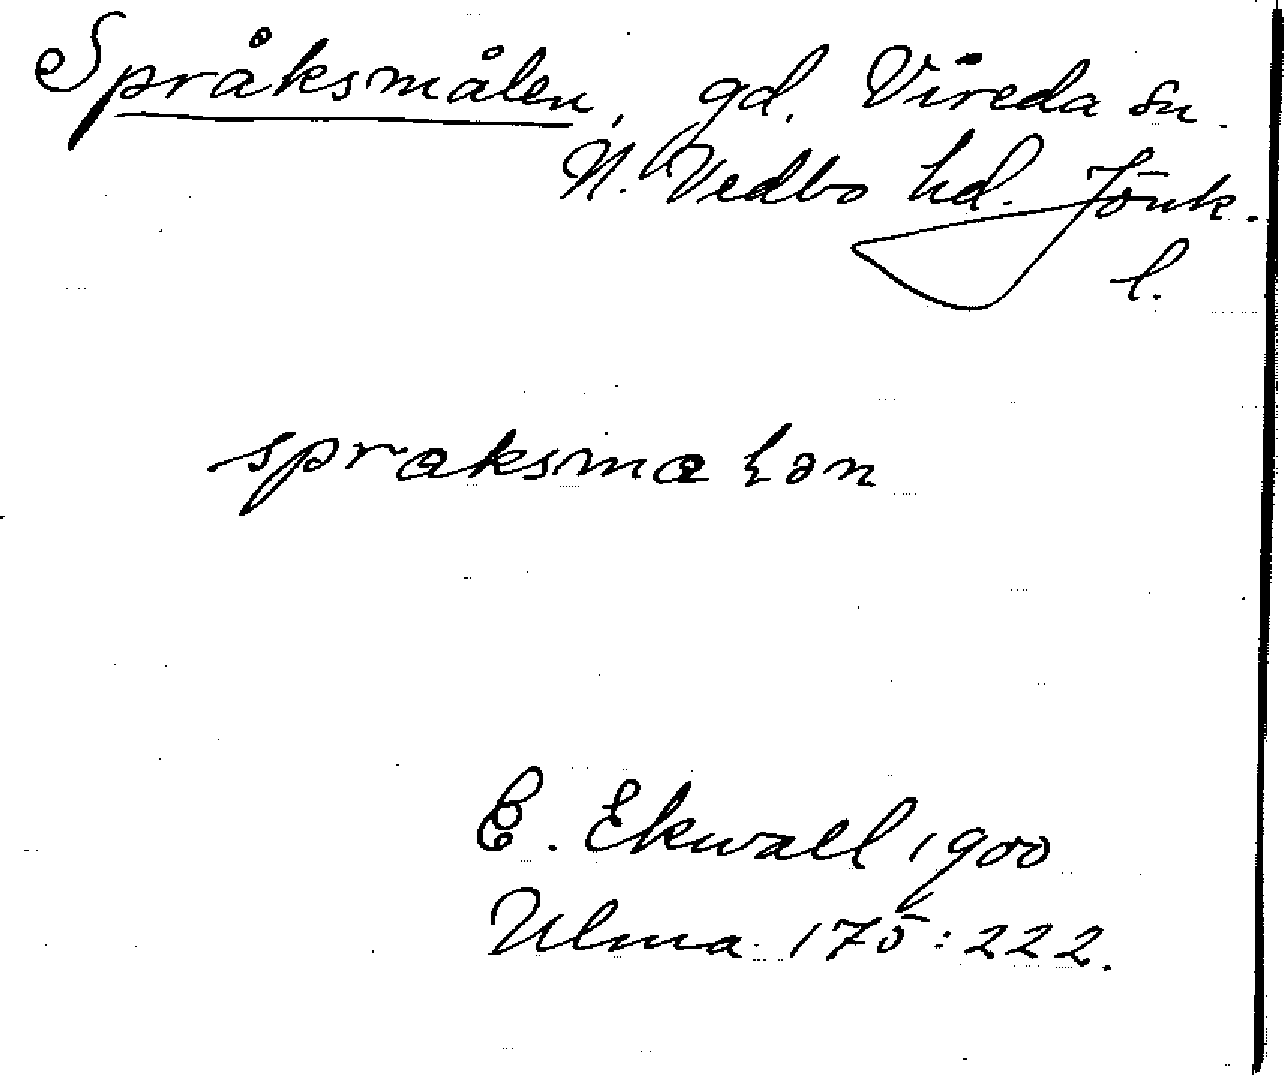 Språksmålen, gd. Vireda sn.
N. Vedbo hd. Jönk.
l.
E. Ekwall 1900
Ulma 175:222.